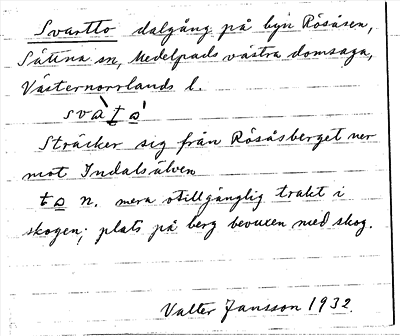 Svartto dalgång på byn Rösåsen,
Sättna sn, Medelpads västra domsaga,
Västernorrlands l.
svàtó
Sträcker sig från Rösåsberget ner
mot Indalsälven
to n. mera otillgänglig trakt i
skogen; plats på berg bevuxen med skog.
Valter Jansson 1932.